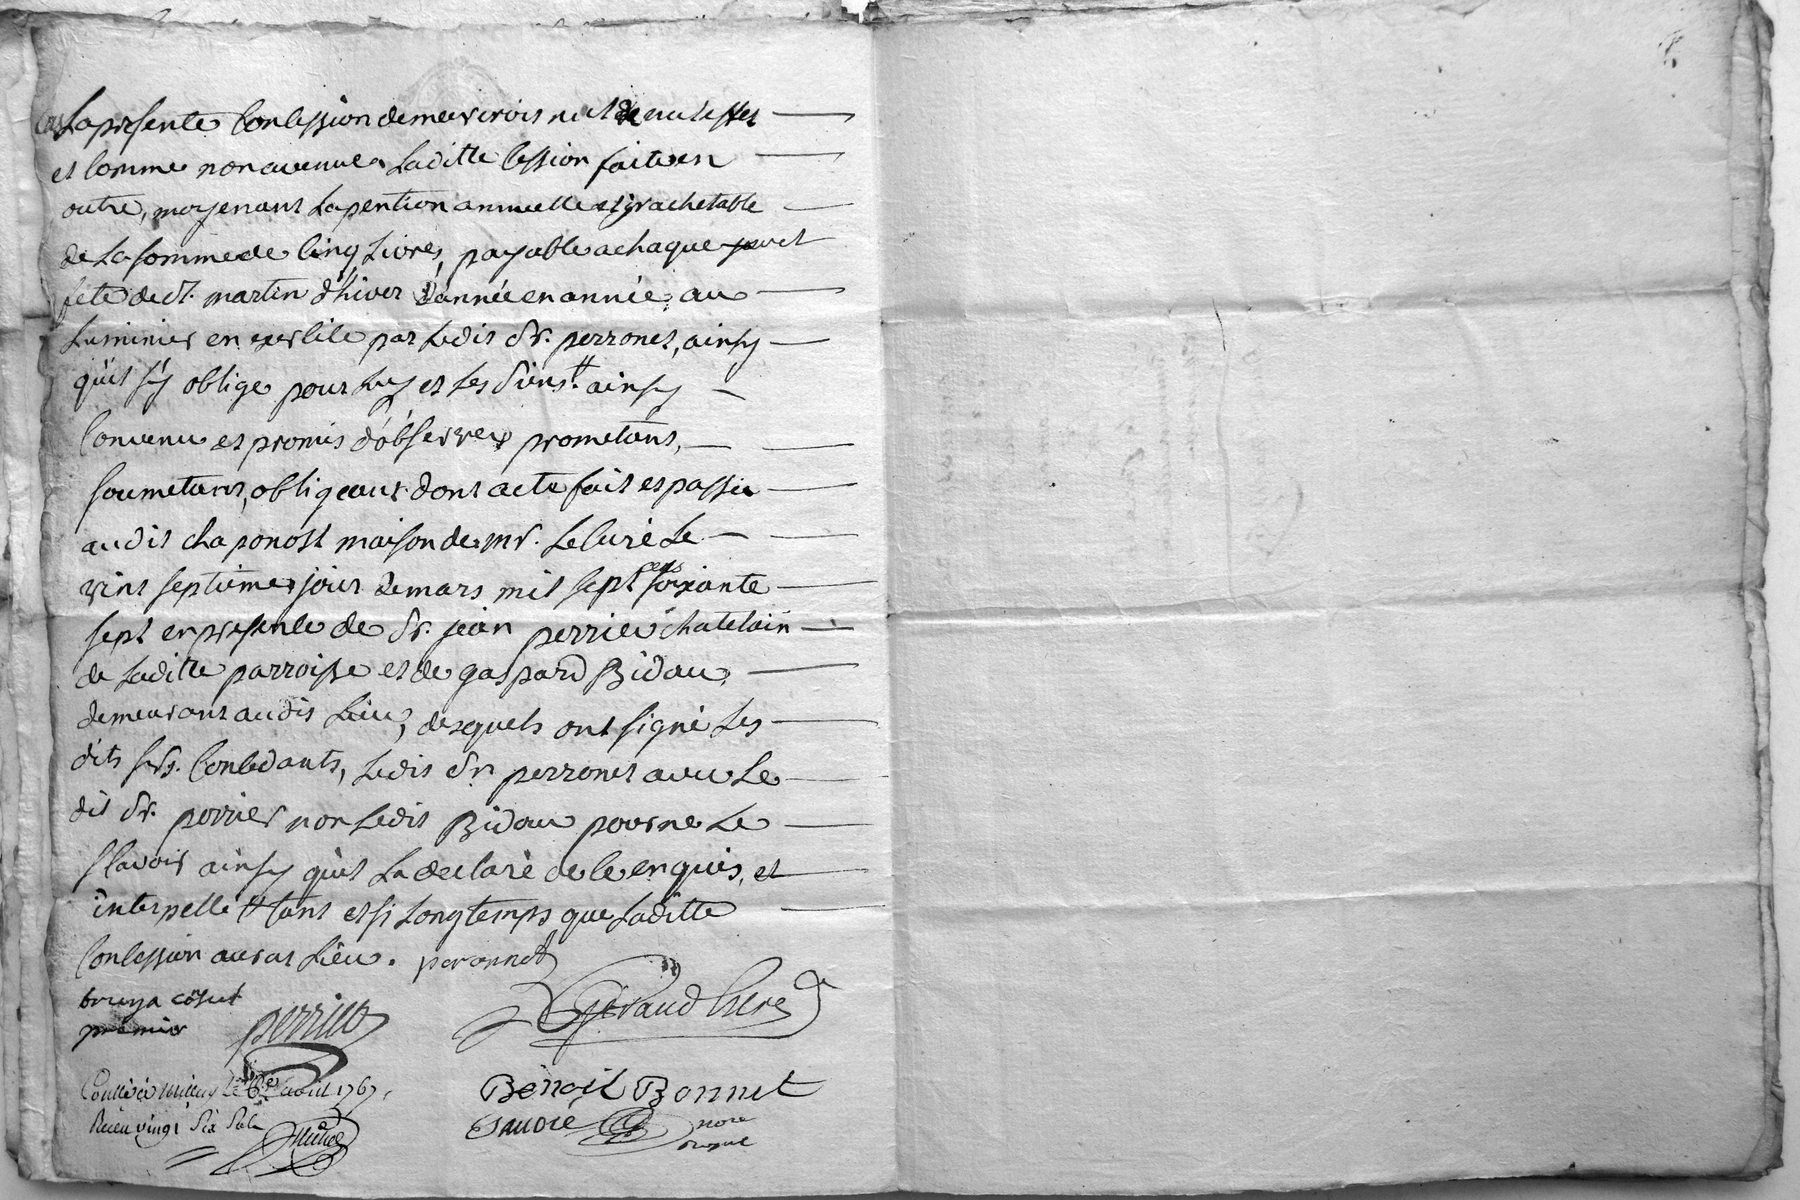 cas La presente Concession demeureroit nul de nul effet
et Comme non avenue Laditte Cession faite en
outre, moyenant La pention annuelle et jrachetable
de La somme de Cinq Livres, payable a chaque jour et
fête de st. martin d'hiver d'année en année, au
Luminier en exercice par Ledit Sr. perronet, ainsy
qu'il s'y oblige pour Luy et Les Siens. ainsy
Convenu et promis d'observer prometant,
soumetant, obligeant dont acte fait et passé
audit chaponost maison de mr. Le Curé Le
vint septieme jour de mars mil sept cens soixante
sept en presence de Sr. jean perrier chatelain
de Laditte parroisse et de gaspard Bidau,
demeurant audit Lieu, desquels ont signé Les
dits srs. Concedants, Ledit Sr. perronet avec Le
dit Sr. perrier non Ledit Bidau pour ne Le
scavoir ainsy qu'il La declaré de Ce enquis, et
interpellé tant et si Longtemps que Laditte
Concession auras Lieu. peronnet
bruya cosul
premier
perrier
Geraud Curé
Benoit Bonnet
Conllé a Millery Le 6e avril 1767.
Reçeu vingt Six Sols